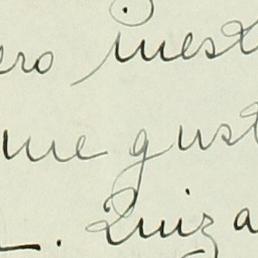 ero inest
me gust
. Quiza